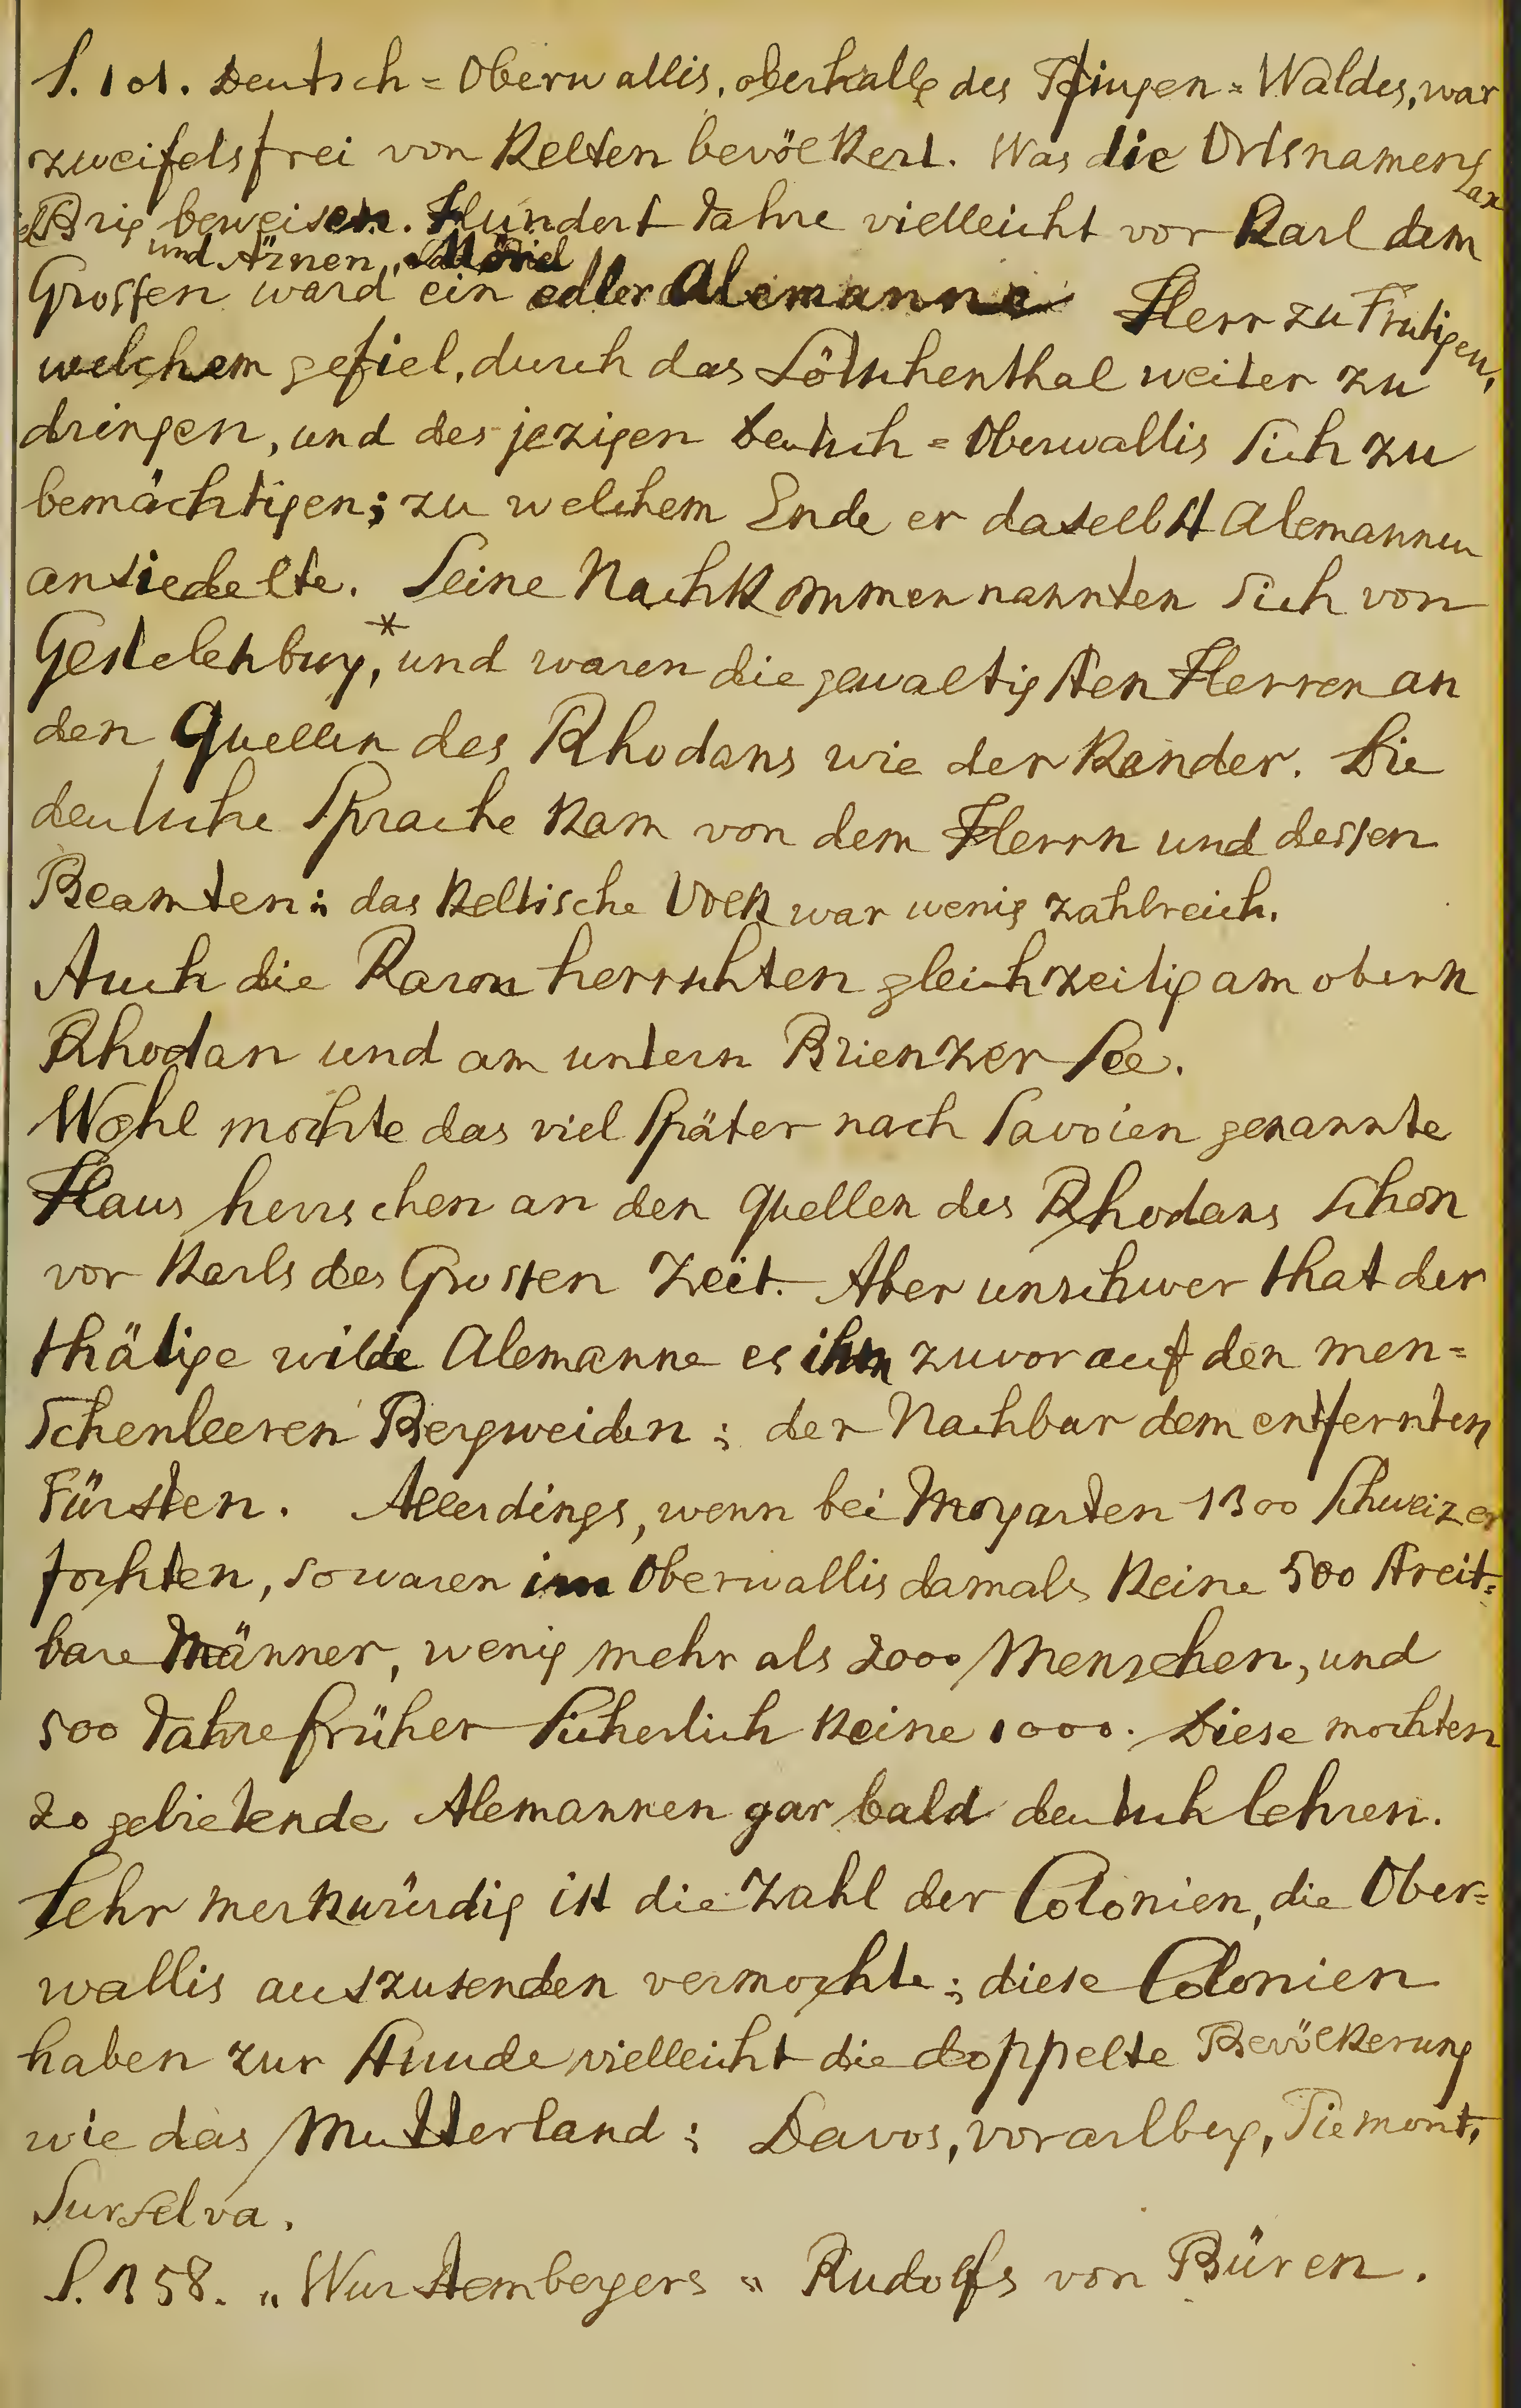 S. 101. Deutsch=Oberwallis, oberhalb des Pfingen=Waldes, war
zweifelsfrei von Kelten bevölkert. Was die Ortsnamen Lax
Brig beweisen. Hundert Jahre vielleicht vor Karl dem
und Ärnen, Mörel
Grossen ward ein edler Alemanne Herr zu Frutigen,
welchem gefiel, durch das Lötschenthal weiter zu
dringen, und des jezigen Deutsch=Oberwallis sich zu
bemächtigen; zu welchem Ende er daselbst Alemannen
ansiedelte. Seine Nachkommen nannten sich von
Gestelenburg,* und waren die gewaltigsten Herren an
den Quellen des Rhodans wie der Kander. Die
deutsche Sprache kam von dem Herrn und dessen
Beamten: das Keltische Volk war wenig zahlreich.
Auch die Raron herrschten gleichzeitig am obern
Rhodan und am untern Brienzer See.
Wohl mochte das viel später nach Savoien genannte
Haus herrschen an den Quellen des Rhodans schon
vor Karls des Grossen Zeit. Aber unschwer that der
thätige wilde Alemanne es ihm zuvor auf den men=
schenleeren Bergweiden; der Nachbar dem entfernten
Fürsten. Allerdings, wenn bei Morgarten 1300 Schweizer
fochten, so waren im Oberwallis damals keine 500 streit=
bare Männer, wenig mehr als 2000 Menschen, und
500 Jahre früher sicherlich keine 1000. Diese mochten
20 gebietende Alemannen gar bald deutsch lehren.
Sehr merkwürdig ist die Zahl der Colonien, die Ober=
wallis auszusenden vermochte; diese Colonien
haben zur Stunde vielleicht die doppelte Bevölkerung
wie das Mutterland; Davos, Vorarlberg, Piemont,
Surselva.
S. 358. „Wurstembergers" Rudolfs von Büren.